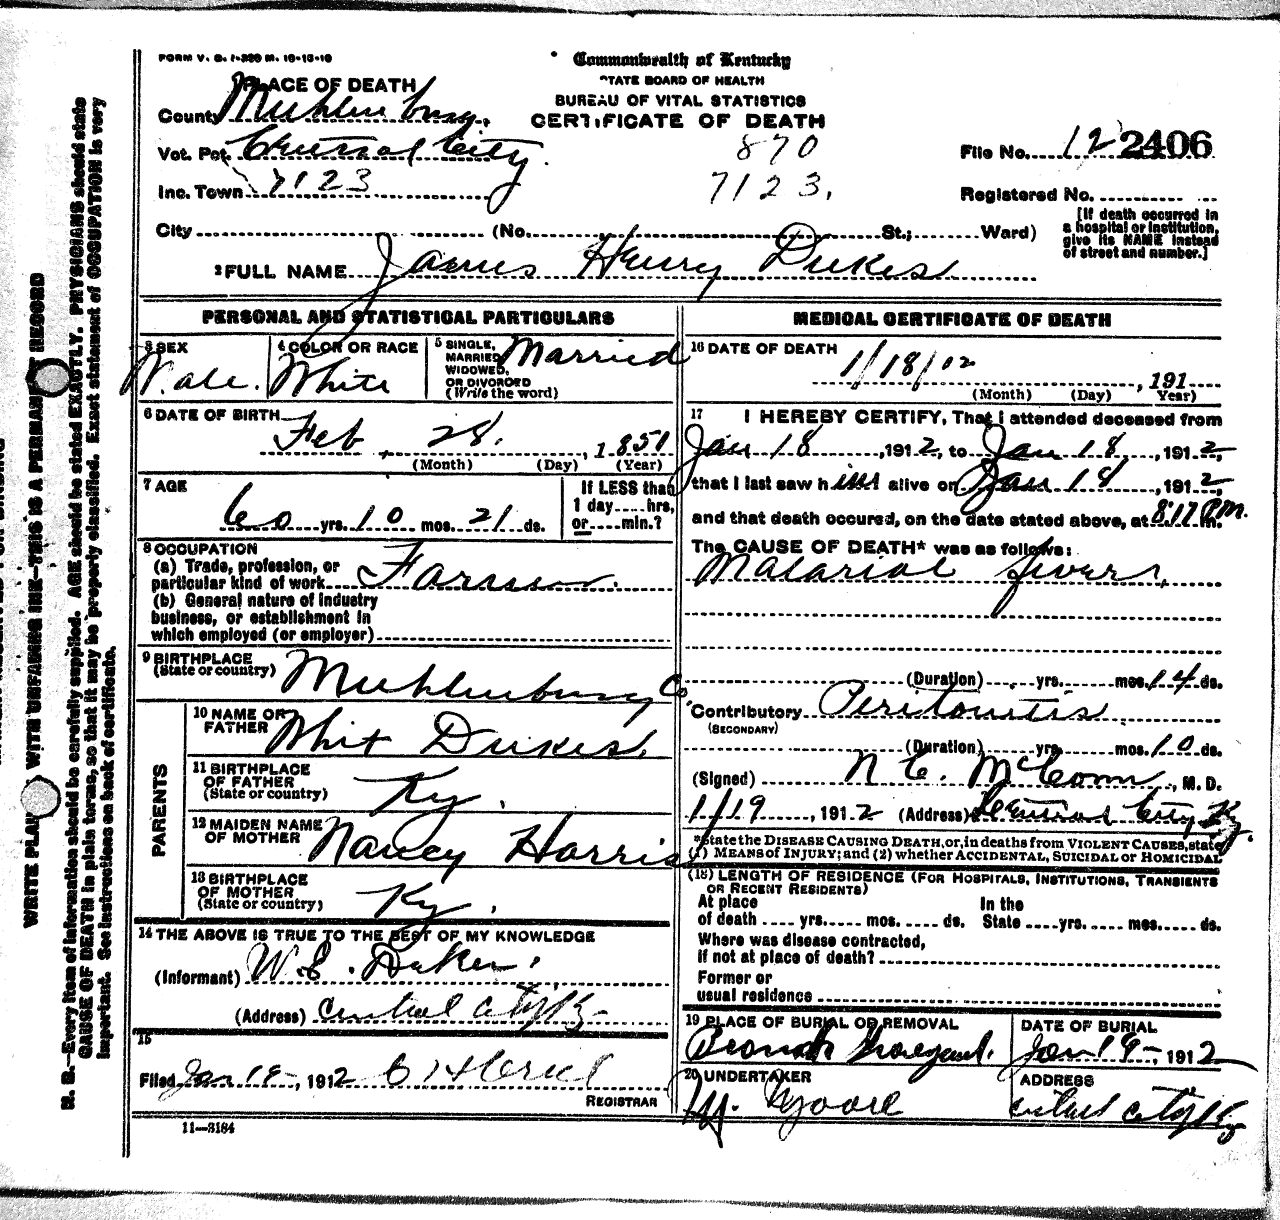 FORM V. S. 1-329 M. 10-13-10
Commonwealth of Kentucky
STATE BOARD OF HEALTH
BUREAU OF VITAL STATISTICS
CERTIFICATE OF DEATH
PLACE OF DEATH
County Muhlenburg.
Vot. Pct. Central City.
Inc. Town 7123
870
7123.
File No. 12 2406
Registered No.
[If death occurred in a hospital or institution, give its NAME instead of street and number.]
City (No. St.; Ward)
2 FULL NAME James Henry Dukes
PERSONAL AND STATISTICAL PARTICULARS
3 SEX
Male.
4 COLOR OR RACE
White
5 SINGLE, MARRIED, WIDOWED, OR DIVORCED (Write the word)
Married
6 DATE OF BIRTH
Feb 28, 1851
(Month) (Day) (Year)
7 AGE
60 yrs. 10 mos. 21 ds.
If LESS than 1 day.....hrs, or.....min.?
8 OCCUPATION
(a) Trade, profession, or particular kind of work Farmer.
(b) General nature of industry business, or establishment in which employed (or employer)
9 BIRTHPLACE
(State or country)
Muhlenburg Co
PARENTS
10 NAME OF FATHER
Whit Dukes.
11 BIRTHPLACE OF FATHER
(State or country)
Ky.
12 MAIDEN NAME OF MOTHER
Nancy Harris
13 BIRTHPLACE OF MOTHER
(State or country)
Ky.
14 THE ABOVE IS TRUE TO THE BEST OF MY KNOWLEDGE
(Informant) W. E. Dukes.
(Address) Central City Ky-
15
Filed Jan 19-, 1912
REGISTRAR
11-3184
MEDICAL CERTIFICATE OF DEATH
16 DATE OF DEATH
1/18/12
, 191
(Month) (Day) Year)
17 I HEREBY CERTIFY, That I attended deceased from
Jan 18, 1912, to Jan 18, 1912,
that I last saw him alive on Jan 18, 1912,
and that death occured, on the date stated above, at 8:17 P.M. m.
The CAUSE OF DEATH* was as follows:
Malarial fever,
(Duration) yrs. mos. 14 ds.
Contributory Peritonitis
(SECONDARY)
(Duration) yrs. mos. 10 ds.
(Signed) N C. McConn, M. D.
1/19, 1912 (Address) Central City Ky.
*State the DISEASE CAUSING DEATH, or, in deaths from VIOLENT CAUSES, state
(1) MEANS of INJURY; and (2) whether ACCIDENTAL, SUICIDAL or HOMICIDAL
(18) LENGTH OF RESIDENCE (FOR HOSPITALS, INSTITUTIONS, TRANSIENTS OR RECENT RESIDENTS)
At place of death .... yrs. .... mos. .... ds.
In the State .... yrs. .... mos. .... ds.
Where was disease contracted,
If not at place of death?
Former or
usual residence
19 PLACE OF BURIAL OR REMOVAL
DATE OF BURIAL
Jan 19-, 1912
20 UNDERTAKER
Moore
ADDRESS
Central City Ky
WRITE PLAINLY WITH UNFADING INK-THIS IS A PERMANENT RECORD
N. B.-Every item of information should be carefully supplied. AGE should be stated EXACTLY. PHYSICIANS should state
CAUSE OF DEATH in plain terms, so that it may be properly classified. Exact statement of OCCUPATION is very
important. See instructions on back of certificate.